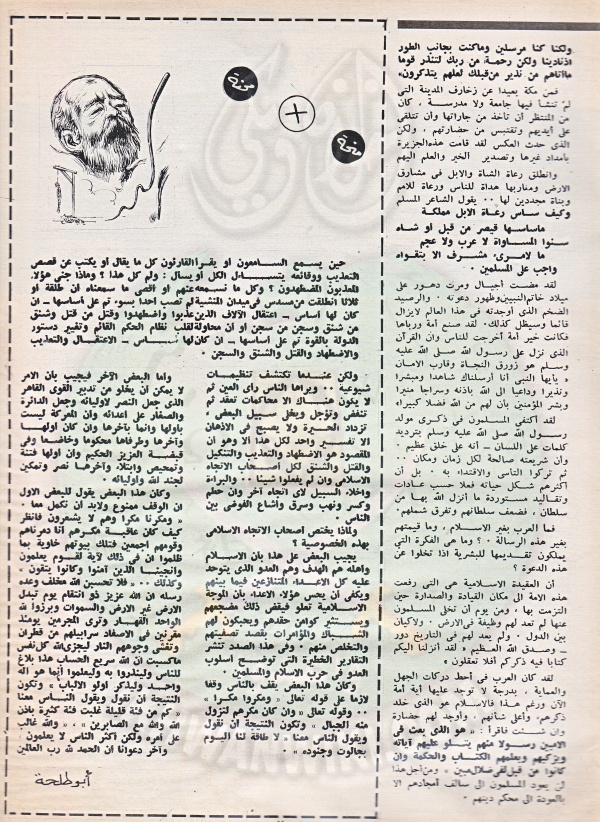 ولكنا كنا مرسلين وماكنت بجانب الطور
اذنادينا ولكن رحمة من ربك لتنذر قوما
ماأتاهم من نذير من قبلك لعلهم يتذكرون»
فمن مكة بعيدا عن زخارف المدينة التى
لم تنشأ فيها جامعة ولا مدرسة ، كان
من المنتظر أن تأخذ من جاراتها وان تتلقى
على أيديهم وتقتبس من حضارتهم ، ولكن
الذى حدث العكس لقد قامت هذه الجزيرة
بامداد غيرها وتصدير الخير والعلم اليهم
وانطلق رعاة الشاة والابل فى مشارق
الارض ومغاربها هداة للناس ورعاة للامم
وبناة مجددين لها ٠٠ يقول الشاعر المسلم
وكيف ساس رعاة الابل مملكة
ماساسها قيصر من قبل او شاه
سنوا المساواة لا عرب ولا عجم
ما لامرىء مشرف الا بتقواه
واجب على المسلمين ٠
لقد مضت أجيال ومرت دهور على
ميلاد خاتم النبيين وظهور دعوته ٠ والرصيد
الضخم الذى أوجدته فى هذا العالم لايزال
قائما وسيظل كذلك٠ لقد صنع أمة ورباها
فكانت خير أمة أخرجت للناس وان القرآن
الذى نزل على رسول الله صلى الله عليه
وسلم هو زورق النجاة وقارب الامان
« يأيها النبى أنا أرسلناك شاهدا ومبشرا
ونذيرا وداعيا الى الله باذنه وسراجا منيرا
وبشر المؤمنين بأن لهم من الله فضلا كبيرا»
لقد اكتفى المسلمون فى ذكرى مولد
رسول الله صلى الله عليه وسلم بترديد
كلمات على اللسان ـ أنه على خلق عظيم ـ
وان شريعته صالحة لكل زمان ومكان ٠٠
ثم تركوا التأسى والاقتداء به ٠ بل أن
أكثرهم شكل حياته فعلا حسب عادات
وتقاليد مستوردة ما أنزل الله بها من
سلطان ، فضعف سلطانهم وتفرق شملهم٠
فما العرب بغير الاسلام ، وما قيمتهم
بغير هذه الرسالة ؟ ٠ وما هى الفكرة التى
يملكون تقديمها للبشرية اذا تخلوا عن
هذه الدعوة ؟
أن العقيدة الاسلامية هى التى رفعت
هذه الامة الى مكان القيادة والصدارة حين
التزمت بها ، ومن يوم أن تخلى المسلمون
عنها لم تعد لهم وظيفة فى الارض ٠ ولاكيان
بين الدول ٠ ولم يعد لهم فى التاريخ دور
ـ وصدق الله العظيم « لقد أنزلنا اليكم
كتابا فيه ذكركم أفلا تعقلون »
لقد كان العرب فى أحط دركات الجهل
والعماية ، بدرجة لا توجد عليها أية أمة
الآن ورغم هذا فالاسلام هو الذى خلد
ذكرهم، وأعلى شأنهم ، وأوجد لهم حضارة
وان شئت فاقرأ : « هو الذى بعث فى
الاميين رسولا منهم يتلو عليهم آياته
ويزكيهم ويعلمهم الكتاب والحكمة وان
كانوا من قبل لفى ضلال مبين » ومن أجل هذا
لن يعود المسلمون الى سالف أمجادهم الا
بالعودة الى محكم دينهم ٠
محنة
+
منحة
حين يسمع السامعون او يقرأ القارئون كل ما يقال او يكتب عن قصص
التعذيب ووقائعه يتساءل الكل او يسأل : ولم كل هذا ؟ وماذا جنى هؤلاء
المعذبون المضطهدون ؟ وكل ما نسمعه عنهم او اقصى ما سمعناه ان طلقة او
ثلاثا انطلقت من مسدس فى ميدان المنشية لم تصب احدا بسوء تم على أساسها ـ ان
كان لها أساس ـ اعتقال الآلاف الذين عذبوا واضطهدوا وقتل من قتل وشنق
من شنق وسجن من سجن او ان محاولة لقلب نظام الحكم القائم وتغيير دستور
الدولة بالقوة تم على أساسها ـ ان كان لها أساس ـ الاعتقال والتعذيب
والاضطهاد والقتل والشنق والسجن ٠
ولكن عندما تكتشف تنظيمات
شيوعية ٠٠ ويراها الناس رأى العين ثم
لا يكون هناك الا محاكمات تعقد ثم
تنفض وتؤجل ويخلى سبيل البعض ،
تزداد الحيرة ولا يصبح فى الاذهان
الا تفسير واحد لكل هذا الا وهو ان
المقصود هو الاضطهاد والتعذيب والتنكيل
والقتل والشنق لكل أصحاب الاتجاه
الاسلامى وان لم يفعلوا شيئا ٠٠ والبراءة
واخلاء السبيل لاى اتجاه آخر وان حطم
وكسر ونهب وسرق وأشاع الفوضى بين
الناس ٠
ولماذا يختص أصحاب الاتجاه الاسلامى
بهذه الخصوصية ؟
يجيب البعض على هذا بان الاسلام
وأهله هم الهدف وهم العدو الذى يتوحد
عليه كل الاعداء المتنازعين فيما بينهم
ويكفى ان يحس هؤلاء الاعداء بأن الموجة
الاسلامية تعلو فيقض ذلك مضجعهم
ويستثير كوامن حقدهم ويحيكون لهم
الشباك والمؤامرات بقصد تصفيتهم
والتخلص منهم ٠ وفى هذا الصدد تنشر
التقارير الخطيرة التى توضح اسلوب
العدو فى حرب الاسلام والمسلمين٠
وكان هذا البعض يقف بالناس وقفا
لازما على قوله تعالى « ومكروا مكرا »
٠٠ وقوله تعالى « وان كان مكرهم لتزول
منه الجبال » وتكون النتيجة ان نقول
ويقول الناس معنا « لا طاقة لنا اليوم
بجالوت وجنوده » ٠
وأما البعض الآخر فيجيب بان الامر
لا يمكن ان يخلو من تدبير القوى القاهر
الذى جعل النصر لاوليائه وجعل الدائرة
والصغار على أعدائه وان المعركة ليست
باولها وانما بآخرها وان كان اولها
وآخرها وطرفاها محكوما وخاضعا وفى
قبضة العزيز الحكيم وان اولها فتنة
وتمحيص وابتلاء وآخرها نصر وتمكين
لجند الله واوليائه ٠
وكان هذا البعض يقول للبعض الاول
ان الوقف ممنوع ولابد ان نكمل معا ٠
« ومكرنا مكرا وهم لا يشعرون فانظر
كيف كان عاقبة مكرهم أنا دمرناهم
وقومهم اجمعين فتلك بيوتهم خاوية بما
ظلموا ان فى ذلك لآية لقوم يعلمون
وانجينا الذين آمنوا وكانوا يتقون »
وكذلك ٠٠ « فلا تحسبن الله مخلف وعده
رسله ان الله عزيز ذو انتقام يوم تبدل
الارض غير الارض والسموات وبرزوا لله
الواحد القهار وترى المجرمين يومئذ
مقرنين فى الاصفاد سرابيلهم من قطران
وتغشى وجوههم النار ليجزى الله كل نفس
ماكسبت ان الله سريع الحساب هذا بلاغ
للناس ولينذروا به وليعلموا أنما هو اله
واحد وليذكر اولو الالباب » وتكون
النتيجة ان نقول ويقول الناس معنا
« كم من فئة قليلة غلبت فئة كثيرة باذن
الله والله مع الصابرين » ، « والله غالب
على أمره ولكن أكثر الناس لا يعلمون ،
وآخر دعوانا ان الحمد لله رب العالمين
أبو طلحة